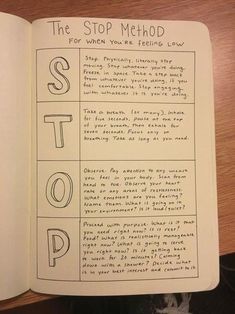 The STOP Method
For when you're feeling low
S
Stop. Physically, literally stop
moving. Stop whatever you're doing.
Freeze in space. Take a step back
from whatever you're doing, if you
feel comfortable. Stop engaging
with whatever it is you're doing.
T
Take a breath (or many). Inhale
for five seconds, pause at the top
of your breath, then exhale for
seven seconds. Focus only on
breathing. Take as long as you need.
O
Observe. Pay attention to any unease
you feel in your body. Scan from
head to toe. Observe your heart
rate or any areas of restlessness.
What emotions are you feeling?
Name them. What is going on in
your environment? Is it loud? Quiet?
P
Proceed with purpose. What is it that
you need right now? Is it rest?
Food? What is realistically manageable
right now? What is going to serve
you right now? Is it getting back
to work for 20 minutes? Calming
down with a shower? Decide what
is in your best interest and commit to it.